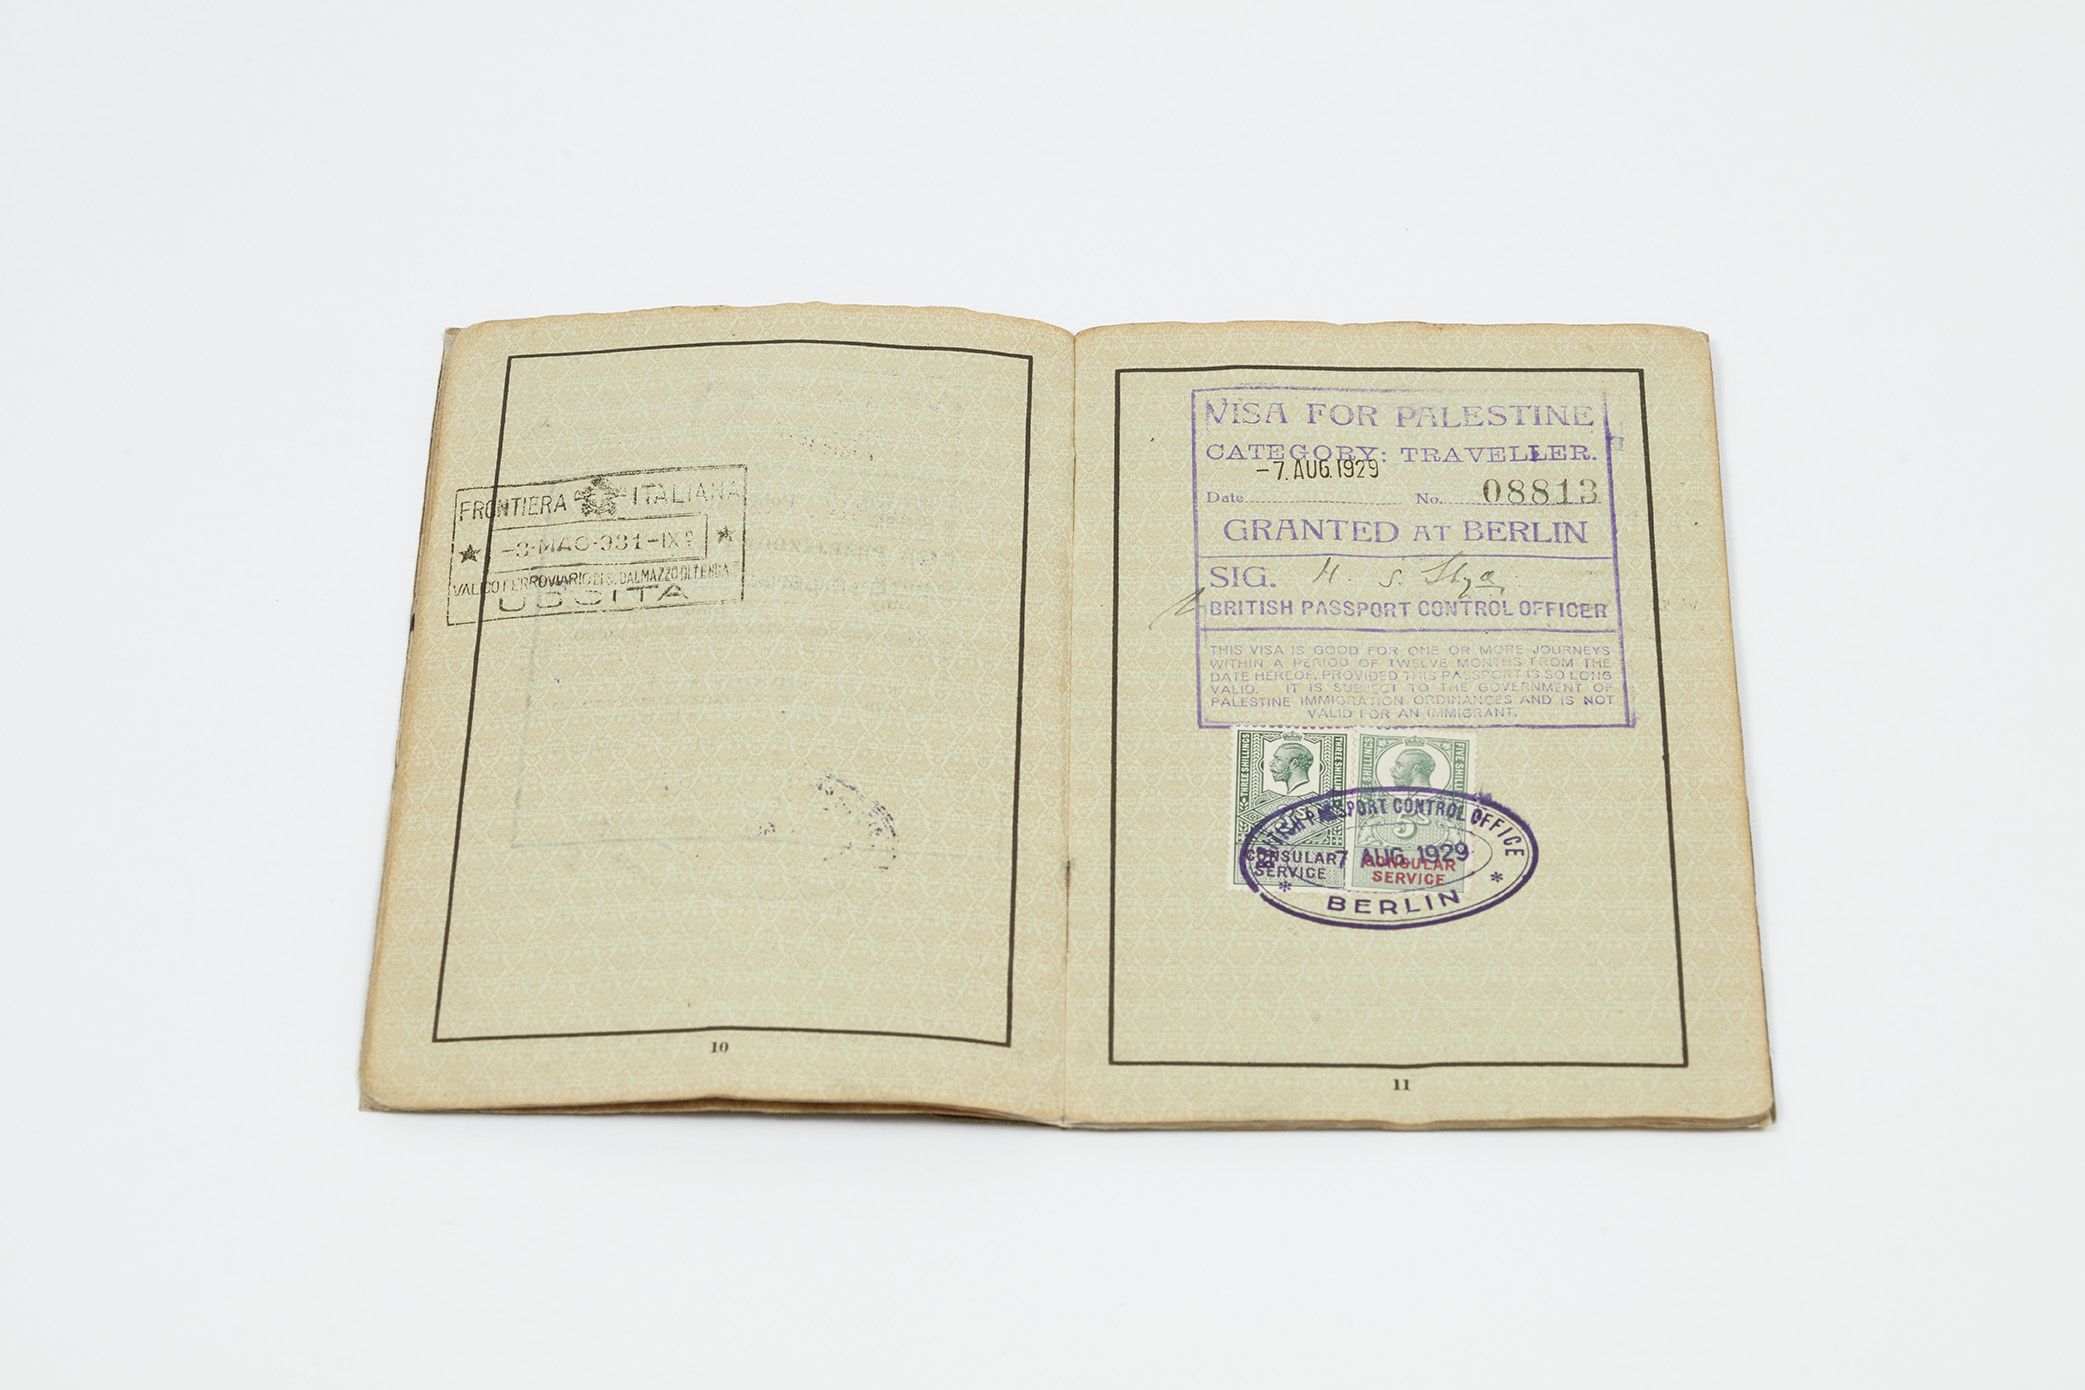 FRONTIERA ITALIANA
-3·MAG·931-IX
VALICO FERROVIARIO DI S. DALMAZZO DI TENDA
USCITA
10
VISA FOR PALESTINE
CATEGORY: TRAVELLER.
-7. AUG. 1929
Date No. 08813
GRANTED AT BERLIN
SIG. H. S.
BRITISH PASSPORT CONTROL OFFICER
THIS VISA IS GOOD FOR ONE OR MORE JOURNEYS
WITHIN A PERIOD OF TWELVE MONTHS FROM THE
DATE HEREOF, PROVIDED THIS PASSPORT IS SO LONG
VALID. IT IS SUBJECT TO THE GOVERNMENT OF
PALESTINE IMMIGRATION ORDINANCES AND IS NOT
VALID FOR AN IMMIGRANT.
THREE SHILLINGS THREE SHILLINGS
FIVE SHILLINGS FIVE SHILLINGS
5S
CONSULAR
SERVICE
CONSULAR
SERVICE
BRITISH PASSPORT CONTROL OFFICE
7 AUG 1929
* BERLIN *
11